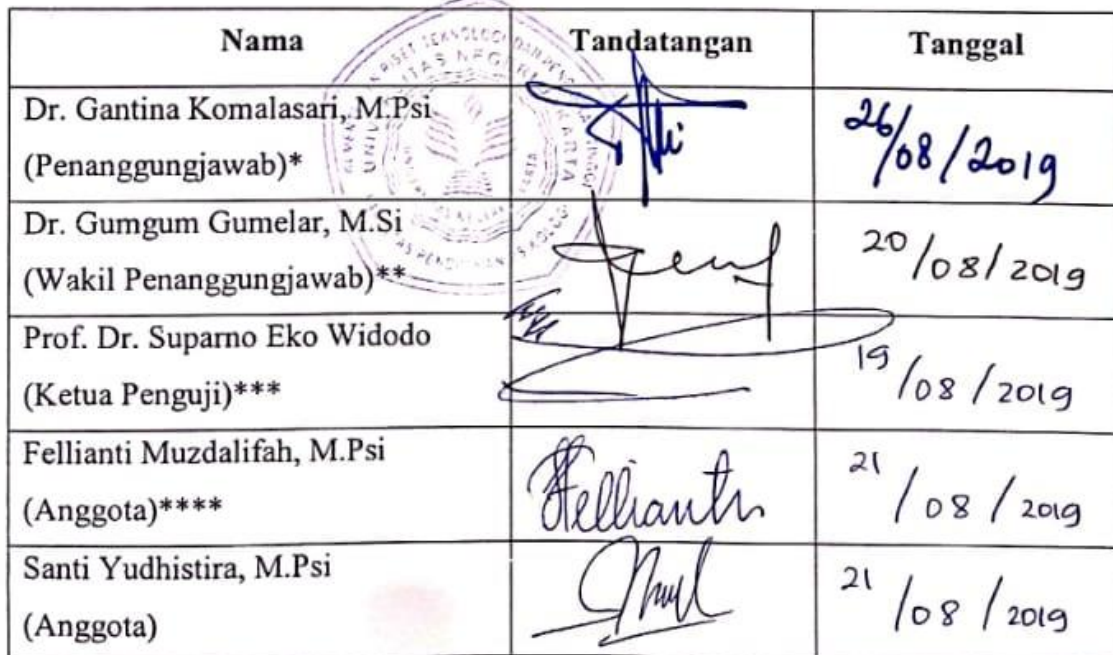 Nama Tandatangan Tanggal
Dr. Gantina Komalasari, M.Psi
(Penanggungjawab)* 26/08/2019
Dr. Gumgum Gumelar, M.Si
(Wakil Penanggungjawab)** 20/08/2019
Prof. Dr. Suparno Eko Widodo
(Ketua Penguji)*** 19/08/2019
Fellianti Muzdalifah, M.Psi
(Anggota)**** Fellianti 21/08/2019
Santi Yudhistira, M.Psi
(Anggota) 21/08/2019